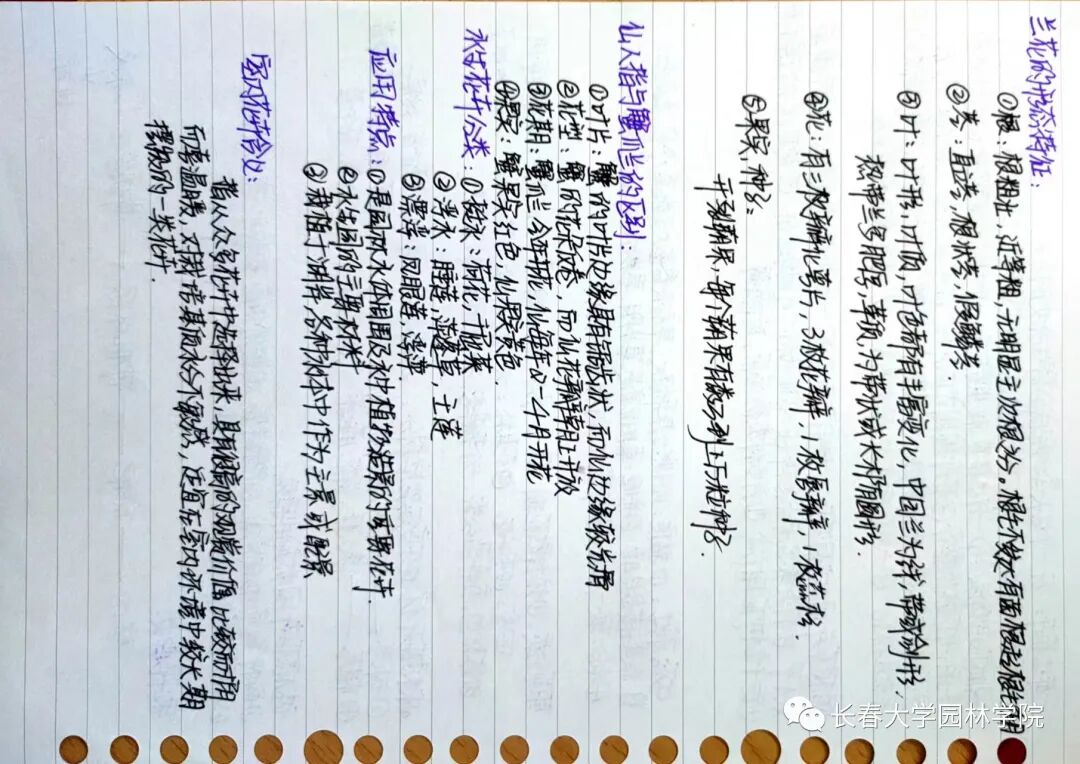 兰花的形态特征：
①根：根粗壮，近等粗，无明显主次根之分。根毛不发达，有菌根起根毛作用
②茎：直茎，根状茎，假鳞茎
③叶：叶形，叶质，叶色都有丰富变化，中国兰为线、带或剑形，
热带兰多肥厚，革质，为带状或长椭圆形.
④花：有三枚瓣化萼片，3枚花瓣，1枚唇瓣，1枚蕊柱.
⑤果实，种子：
开裂蒴果，每个蒴果有数万到上万粒种子.
仙人指与蟹爪兰的区别：
①叶片：蟹的叶片边缘具有锯齿状，而仙边缘较光滑
②花型：蟹的花朵反卷，而仙花瓣朝上开放
③花期：蟹爪兰今年开花，仙每年2-4月开花
④果实：蟹果实红色，仙果黄色.
水生花卉分类：①挺水：荷花，千屈菜
②浮水：睡莲，萍蓬草，王莲
③漂浮：凤眼莲，浮萍.
应用特点：①是园林水体周围及水中植物造景的重要花卉.
②水生园的主要材料
③栽植于湖岸、各种水体中作为主景或配景
室内花卉含义：
指从众多花卉中选择出来，具有很高的观赏价值，比较耐阴
而喜温暖，对栽培基质水分不敏感，适宜在室内环境中较长期
摆放的一类花卉.
长春大学园林学院